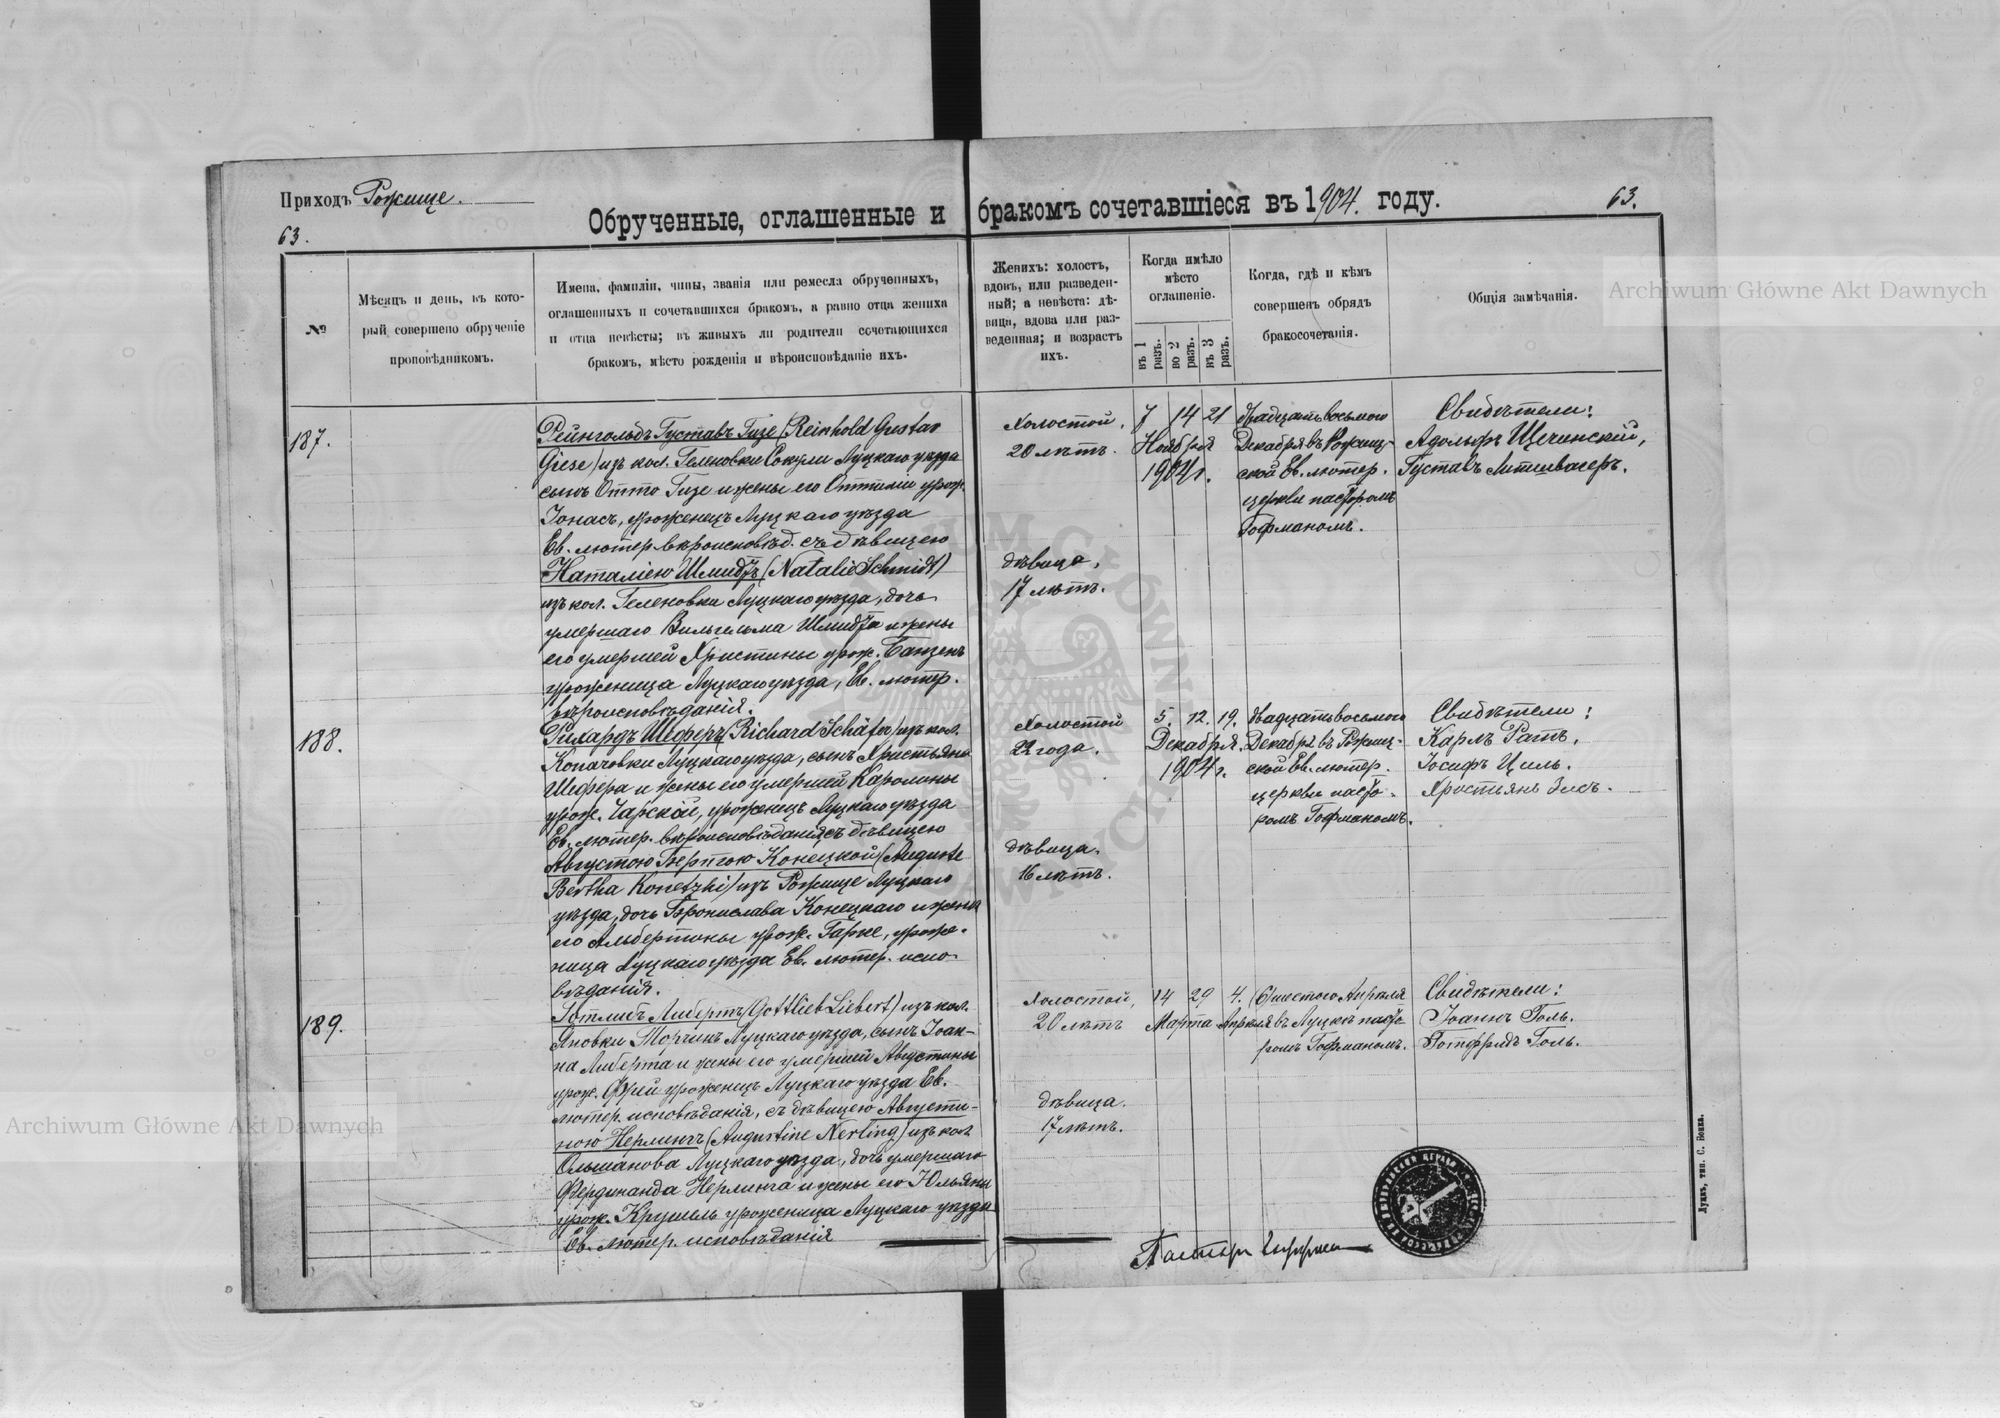 Приходъ Рожище.
63.
Обрученные, оглашенные и бракомъ сочетавшіеся въ 1904. году.
63.
№
Мѣсяцъ и день, въ кото-
рый совершено обрученіе
проповѣдникомъ.
Имена, фамиліи, чины, званія или ремесла обрученныхъ,
оглашенныхъ и сочетавшихся бракомъ, а равно отца жениха
и отца невѣсты; въ живыхъ ли родители сочетающихся
бракомъ, мѣсто рожденія и вѣроисповѣданіе ихъ.
Женихъ: холостъ,
вдовъ, или разведен-
ный; а невѣста: дѣ-
вица, вдова или раз-
веденная; и возрастъ
ихъ.
Когда имѣло
мѣсто
оглашеніе.
въ 1 разъ.
во 2 разъ.
въ 3 разъ.
Когда, гдѣ и кѣмъ
совершенъ обрядъ
бракосочетанія.
Общія замѣчанія.
Archiwum Główne Akt Dawnych
187.
Рейнгольдъ Густавъ Гизе (Reinhold Gustav
Giese) изъ кол. Геленовки Сокули Луцкаго уѣзда
сынъ Отто Гизе и жены его Оттиліи урож.
Іонасъ, уроженецъ Луцкаго уѣзда
Ев. лютер. вѣроисповѣд. съ дѣвицею
Наталіею Шмидтъ (Natalie Schmidt)
изъ кол. Геленовки Луцкаго уѣзда, дочь
умершаго Вильгельма Шмидта и жены
его умершей Христины урож. Банзенъ
уроженица Луцкаго уѣзда, Ев. лютер.
вѣроисповѣданія.
Холостой,
20 лѣтъ.
дѣвица,
17 лѣтъ.
7 14 21
Ноября
1904 г.
двадцать восьмого
Декабря въ Рожищ-
ской Ев. лютер.
церкви пасторомъ
Гофманомъ.
Свидѣтели:
Адольфъ Щечинскій,
Густавъ Литшвагеръ.
188.
Рихардъ Шеферъ (Richard Schäfer) изъ кол.
Копачовки Луцкаго уѣзда, сынъ Христьяна
Шефера и жены его умершей Каролины
урож. Чарской, уроженецъ Луцкаго уѣзда
Ев. лютер. вѣроисповѣданія съ дѣвицею
Августою Бертою Конецкой (Auguste
Bertha Konetzki) изъ Рожище Луцкаго
уѣзда, дочь Бронислава Конецкаго и жены
его Альбертины урож. Гарке, уроже-
ница Луцкаго уѣзда Ев. лютер. испо-
вѣданія.
Холостой
22 года.
дѣвица.
16 лѣтъ.
5. 12. 19.
Декабря.
1904 г.
двадцать восьмого
Декабря въ Рожищ-
ской Ев. лютер.
церкви пасто-
ромъ Гофманомъ.
Свидѣтели:
Карлъ Ратъ,
Іосифъ Циль.
Христьянъ Зисъ.
189.
Готлибъ Либертъ (Gottlieb Liebert) изъ кол.
Яновки Торчинъ Луцкаго уѣзда, сынъ Іоан-
на Либерта и жены его умершей Августины
урож. Фрей уроженецъ Луцкаго уѣзда Ев.
лютер. исповѣданія, съ дѣвицею Августи-
ною Нерлингъ (Augustine Nerling) изъ кол.
Ольшанова Луцкаго уѣзда, дочь умершаго
Фердинанда Нерлинга и жены его Юльяны
урож. Крушель уроженица Луцкаго уѣзда
Ев. лютер. исповѣданія
Холостой,
20 лѣтъ
дѣвица.
17 лѣтъ.
14 29 4.
Марта Апрѣля
(6) шестого Апрѣля
въ Луцкѣ пасто-
ромъ Гофманомъ.
Свидѣтели:
Іоаннъ Голь.
Готфридъ Голь.
Archiwum Główne Akt Dawnych
Пасторъ Гофманъ
Луцкъ, тип. С. Бонка.